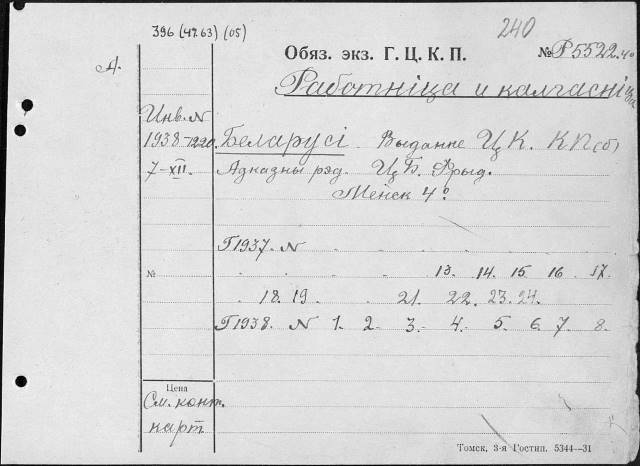 396 (47.63) (05)
240
Обяз. экз. Г. Ц. К. П. № Р5522.40
А.
Работніца и калгасніца
Инв. N
1938-1220 Беларусі Выданне ЦК. КП(б)
7-XII. Адказны рэд. Ц.Б. Фрыд.
Менск 4°
Г1937. N
№ 13. 14. 15. 16 17.
18. 19. 21. 22. 23. 24.
Г1938. N 1. 2. 3. 4. 5. 6. 7. 8.
Цена
См. конт.
карт.
Томск, 3-я Гостип. 5344—31